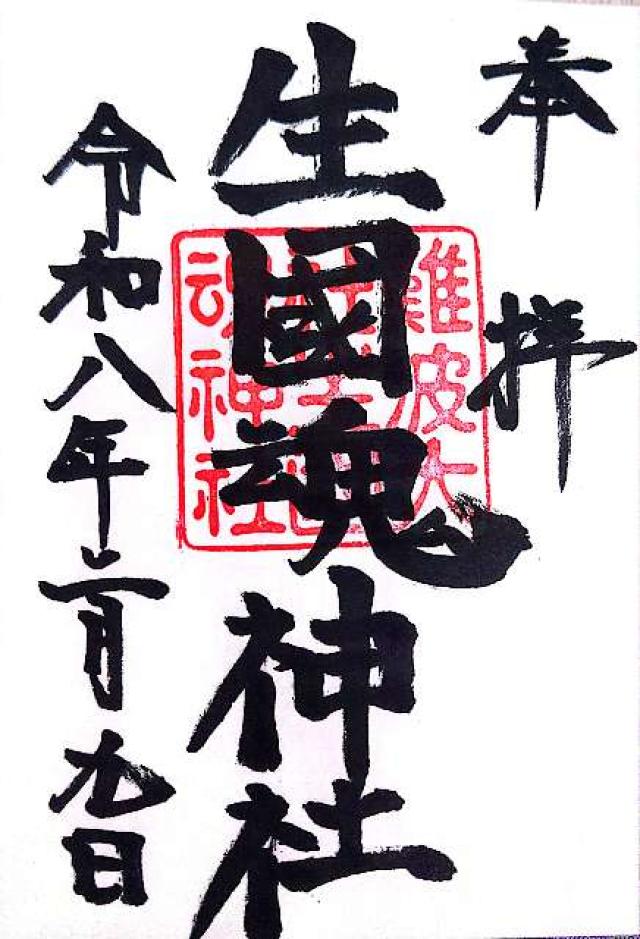 奉拝
生國魂神社
難波大社生國魂神社
令和八年二月九日